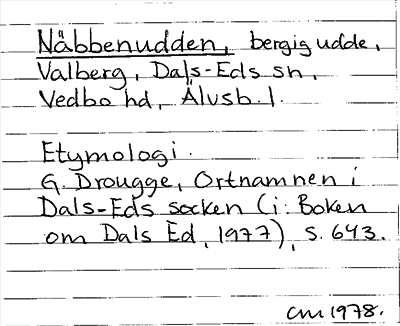 Näbbenudden, bergig udde,
Valberg, Dals-Eds sn,
Vedbo hd, Älvsb. l.
Etymologi.
G. Drougge, Ortnamnen i
Dals-Eds socken (i: Boken
om Dals Ed, 1977), s. 643.
CM 1978.